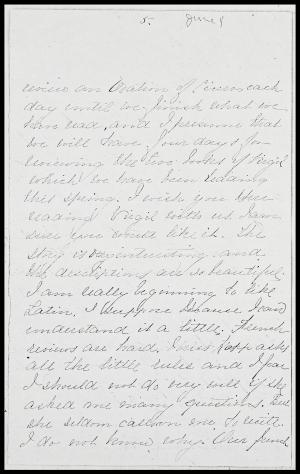 5. June 8
review an Oration of Cicero each
day until we finish what we
have read, and I presume that
we will have four days for
reviewing the two books of Virgil
which we have been reading
this spring. I wish you were
reading Virgil with us. I am
sure you would like it. The
story is so interesting and
the descriptions are so beautiful.
I am really beginning to like
Latin. I suppose because I can
understand it a little. French
reviews are hard. Miss Kapp asks
all the little rules and I fear
I should not do very well if she
asked me many questions. But
she seldom calls on me to recite.
I do not know why. Our French